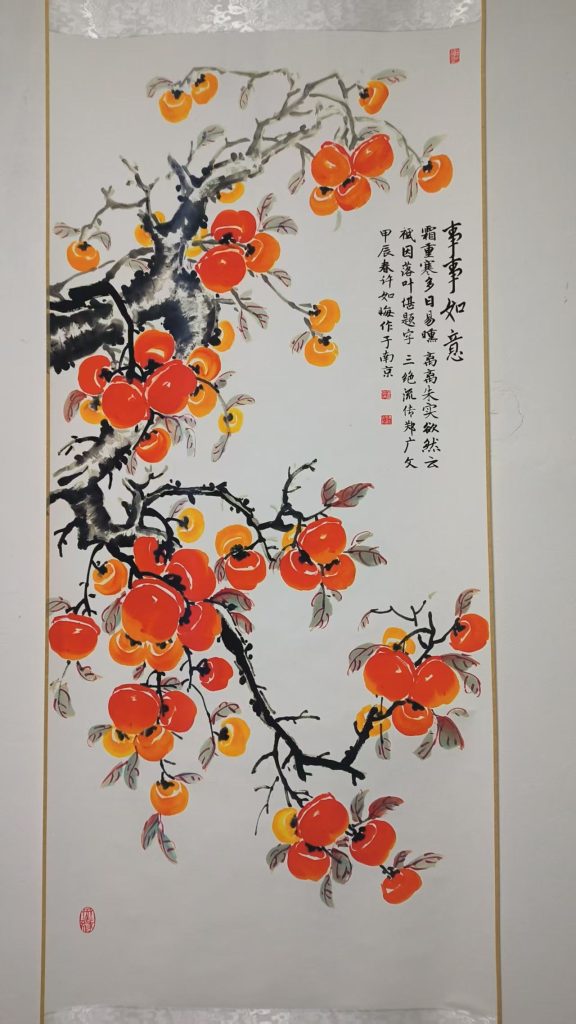 事事如意
霜重寒多日易曛 离离朱实欲然云
祗因落叶堪题字 三绝流传郑广文
甲辰春许如晦作于南京